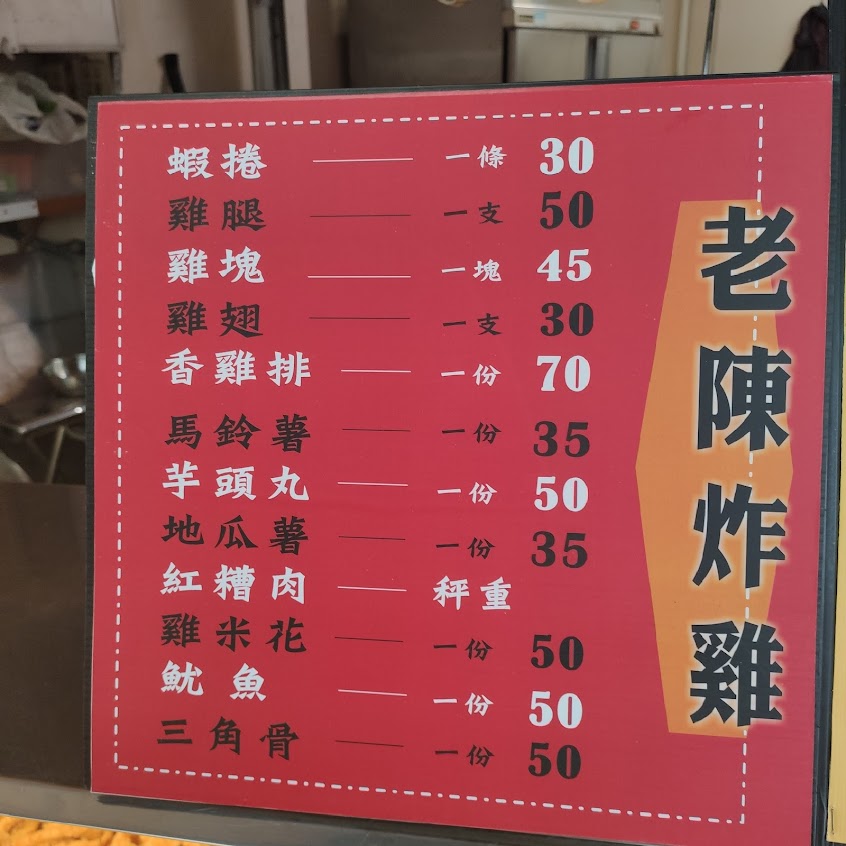 老陳炸雞
蝦捲 一條 30
雞腿 一支 50
雞塊 一塊 45
雞翅 一支 30
香雞排 一份 70
馬鈴薯 一份 35
芋頭丸 一份 50
地瓜薯 一份 35
紅糟肉 秤重
雞米花 一份 50
魷魚 一份 50
三角骨 一份 50